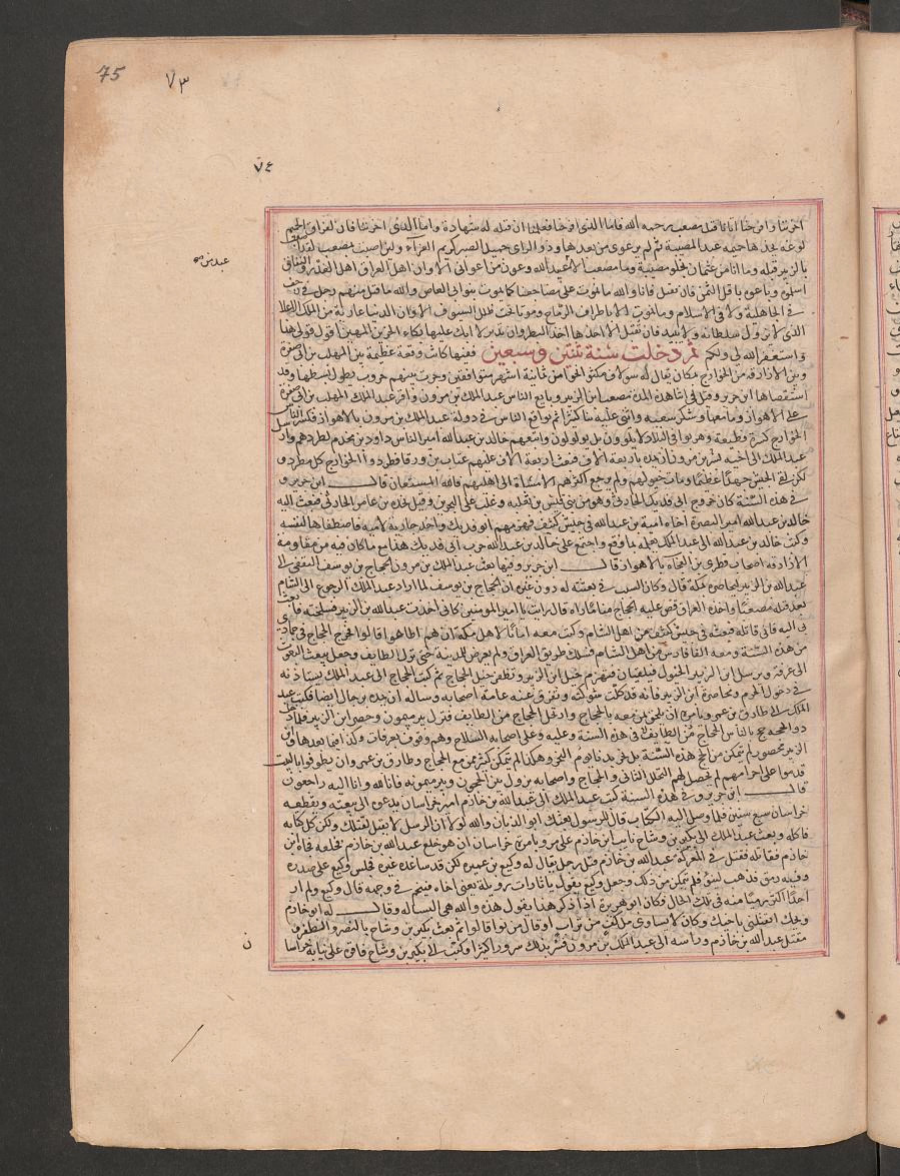 75
٧٣
٧٤
احزننا وافرحنا اتانا قتل مصعب رحمه الله فاما الذى افرحنا فعلمنا ان قتله له شهادة واما الذى احزننا فان لفراق الحميم
لوعة يجدها حميمه عند المصيبة ثم يرعوى من بعدها وذو الراى جميل الصبر كريم العزاء ولئن اصبت بمصعب لقد اصبت
بالزبير قبله وما انا من عثمان بخلو مصيبة وما مصعب الا عبد الله وعون من اعوانى الا وان اهل العراق اهل الغدر والنفاق
اسلموه وباعوه باقل الثمن فان يقتل فانا والله ما نموت على مضاجعنا كما يموت بنو ابى العاص والله ما قتل منهم رجل فى زحف
فى الجاهلية ولا فى الاسلام وما نموت الا باطراف الرماح وموتا تحت ظلال السيوف الا وان الدنيا عارية من الملك الاعلا
الذى لا يزول سلطانه ولا يبيد فان تقبل لا آخذها اخذ البطر وان تدبر لا ابك عليها بكاء الحزين المهين اقول قولى هذا
واستغفر الله لى ولكم ثم دخلت سنة ثنتين وسبعين ففيها كانت وقعة عظيمة بين المهلب بن ابى صفرة
وبين الازارقة من الخوارج بمكان يقال له سولاف مكثوا نحوا من ثمانية اشهر متواقفين وجرت بينهم حروب يطول بسطها وقد
استقصاها ابن جرير وقتل فى اثناء هذه المدة مصعب ابن الزبير وبايع الناس عبد الملك بن مروان واقر عبد الملك المهلب بن ابى صفرة
على الاهواز وما معها وشكر سعيه واثنى عليه ثناء كثيرا ثم تواقع الناس فى دولة عبد الملك بن مروان بالاهواز فكسر الناس
الخوارج كسرة فظيعة وهربوا فى البلاد لا يلوون بل يولولون واتبعهم خالد بن عبد الله امير الناس داود بن مخدم ليطردهم وارسل
عبد الملك الى اخيه بشر بن مروان ان يمده باربعة الاف فبعث اربعة الاف عليهم عتاب بن ورقا فطردوا الخوارج كل مطرد و
لكن لقى الجيش جهدا عظيما ومات خيولهم ولم يرجع اكثرهم الا مشاة الى اهليهم فالله المستعان قال ابن جرير و
فى هذه السنة كان خروج ابى فديك الحارثى وهو من بنى قيس بن ثعلبة وغلب على البحرين وقتل نجدة بن عامر الحارثى فبعث اليه
خالد بن عبد الله امير البصرة اخاه امية بن عبد الله فى جيش كثيف فهزمهم ابو فديك واخذ جارية لامية فاصطفاها لنفسه
وكتب خالد بن عبد الله الى عبد الملك يعلمه بما وقع واجتمع على خالد بن عبد الله حرب ابى فديك هذا مع ما كان فيه من مقاومة
الازارقة اصحاب قطرى بن الفجاة بالاهواز قال ابن جرير وفيها بعث عبد الملك بن مروان الحجاج بن يوسف الثقفى الى
عبد الله بن الزبير ليحاصره بمكة قال وكان السبب فى بعثته له دون غيره ان الحجاج بن يوسف لما اراد عبد الملك الرجوع الى الشام
بعد قتله مصعبا واخذه العراق قص عليه الحجاج مناما راه قال رايت يا امير المومنين كانى اخذت عبد الله بن الزبير فسلخته فابعث
بى اليه فانى قاتله فبعثه فى جيش كثيف من اهل الشام وكتب معه امانا لاهل مكة ان هم اطاعوا قالوا فخرج الحجاج فى جمادى
من هذه السنة ومعه الفا فارس من اهل الشام فسلك طريق العراق ولم يعرض للمدينة حتى نزل الطايف وجعل يبعث البعوث
الى عرفة ويرسل ابن الزبير الخيول فيلتقيان فتهزم خيل ابن الزبير وتظفر خيل الحجاج ثم كتب الحجاج الى عبد الملك يستاذنه
فى دخول الحرم ومحاصرة ابن الزبير فانه قد كلت شوكته وتفرق عنه عامة اصحابه وساله ان يمده برجال ايضا فكتب عبد
الملك الى طارق بن عمرو يامره ان يلحق بمن معه بالحجاج وارتحل الحجاج من الطايف فنزل بير ميمون وحصر ابن الزبير فلما دخل
ذو الحجة حج بالناس الحجاج من الطايف فى هذه السنة وعليه وعلى اصحابه السلاح وهم وقوف بعرفات وكذا فيما بعدها وابن
الزبير محصور لم تمكن من الحج هذه السنة بل نحر بدنا يوم النحر وهكذا لم تمكن كثير ممن مع الحجاج وطارق بن عمر وان يطوفوا بالبيت
قدموا على احرامهم لم يحصل لهم التحلل الثانى والحجاج واصحابه نزول بين الحجون وبير ميمونة فانا لله وانا اليه راجعون
قال ابن جرير وفى هذه السنة كتب عبد الملك الى عبد الله بن خازم امير خراسان يدعوه الى بيعته ويقطعه
خراسان سبع سنين فلما وصل اليه الكتاب قال للرسول بعثك ابو الذبان والله لولا ان الرسل لا تقتل لقتلتك ولكن كل كتابه
فاكله وبعث عبد الملك الى بكير بن وشاح نايب ابن خازم على مرو بامرة خراسان ان هو خلع عبد الله بن خازم فخلعه فجاه ابن
خازم فقاتله فقتل فى المعركة عبد الله بن خازم قتله رجل يقال له وكيع بن عميرة لكن قد ساعده غيره فجلس وكيع على صدره
وفيه رمق فذهب لينوء فلم تمكن من ذلك وجعل وكيع يقول يا ثارات دويلة يعنى اخاه فيتنخم فى وجهه قال وكيع ولم ار
احدا اكثر ريقا منه فى تلك الحال فكان ابو هريرة اذا ذكر هذا يقول هذه والله هى البسالة وقال له ابن خازم
ويحك اتقتلنى باخيك وكان لا يساوى ملا كف من تراب او قال من نوا قالوا ثم بعث بكير بن وشاح بالنصر والظفر من
مقتل عبد الله بن خازم وراسه الى عبد الملك بن مروان فسر بذلك سرورا كثيرا وكتب الى بكير بن وشاح فاقره على نيابة خراسان